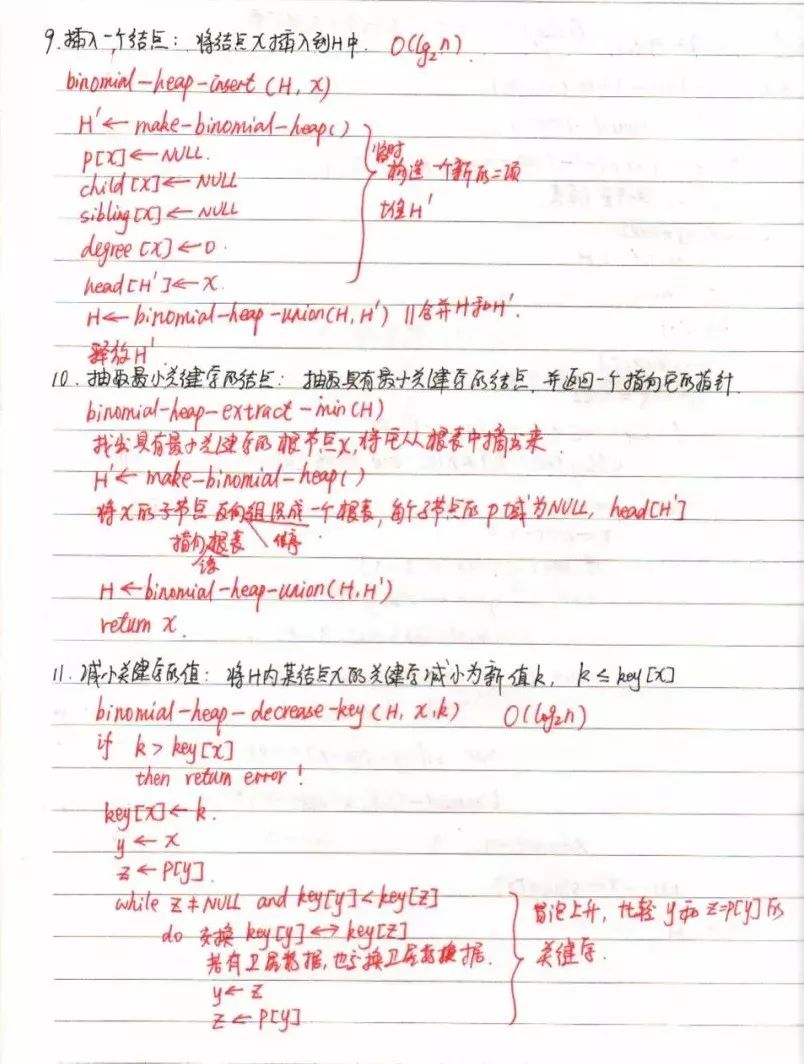 9.插入一个结点：将结点x插入到H中. O(lg₂n).
binomial-heap-insert (H, x)
H'← make-binomial-heap()
p[x]←NULL.
child[x]←NULL
sibling[x]←NULL
degree[x]←0.
head[H']←x.
临时
构造一个新的二项
堆H'
H←binomial-heap-union(H, H') //合并H和H'.
释放H'
10. 抽取最小关键字的结点：抽取具有最小关键字的结点,并返回一个指向它的指针.
binomial-heap-extract-min(H)
找出具有最小关键字的根节点x,将它从根表中摘出来.
H'← make-binomial-heap()
将x的子节点反向组织成一个根表,每个子节点的p域为NULL, head[H']
指向根表 保序
H←binomial-heap-union(H, H')
return x.
11. 减小关键字的值：将H内某结点x的关键字减小为新值k, k≤key[x]
binomial-heap-decrease-key(H, x, k) O(log₂n)
if k>key[x]
then return error!
key[x]←k.
y←x
z←p[y].
while z≠NULL and key[y]<key[z]
do 交换 key[y]↔key[z]
若有卫星数据,也交换卫星数据.
y←z
z←p[y]
冒泡上升, 比较y和z=p[y]的
关键字.